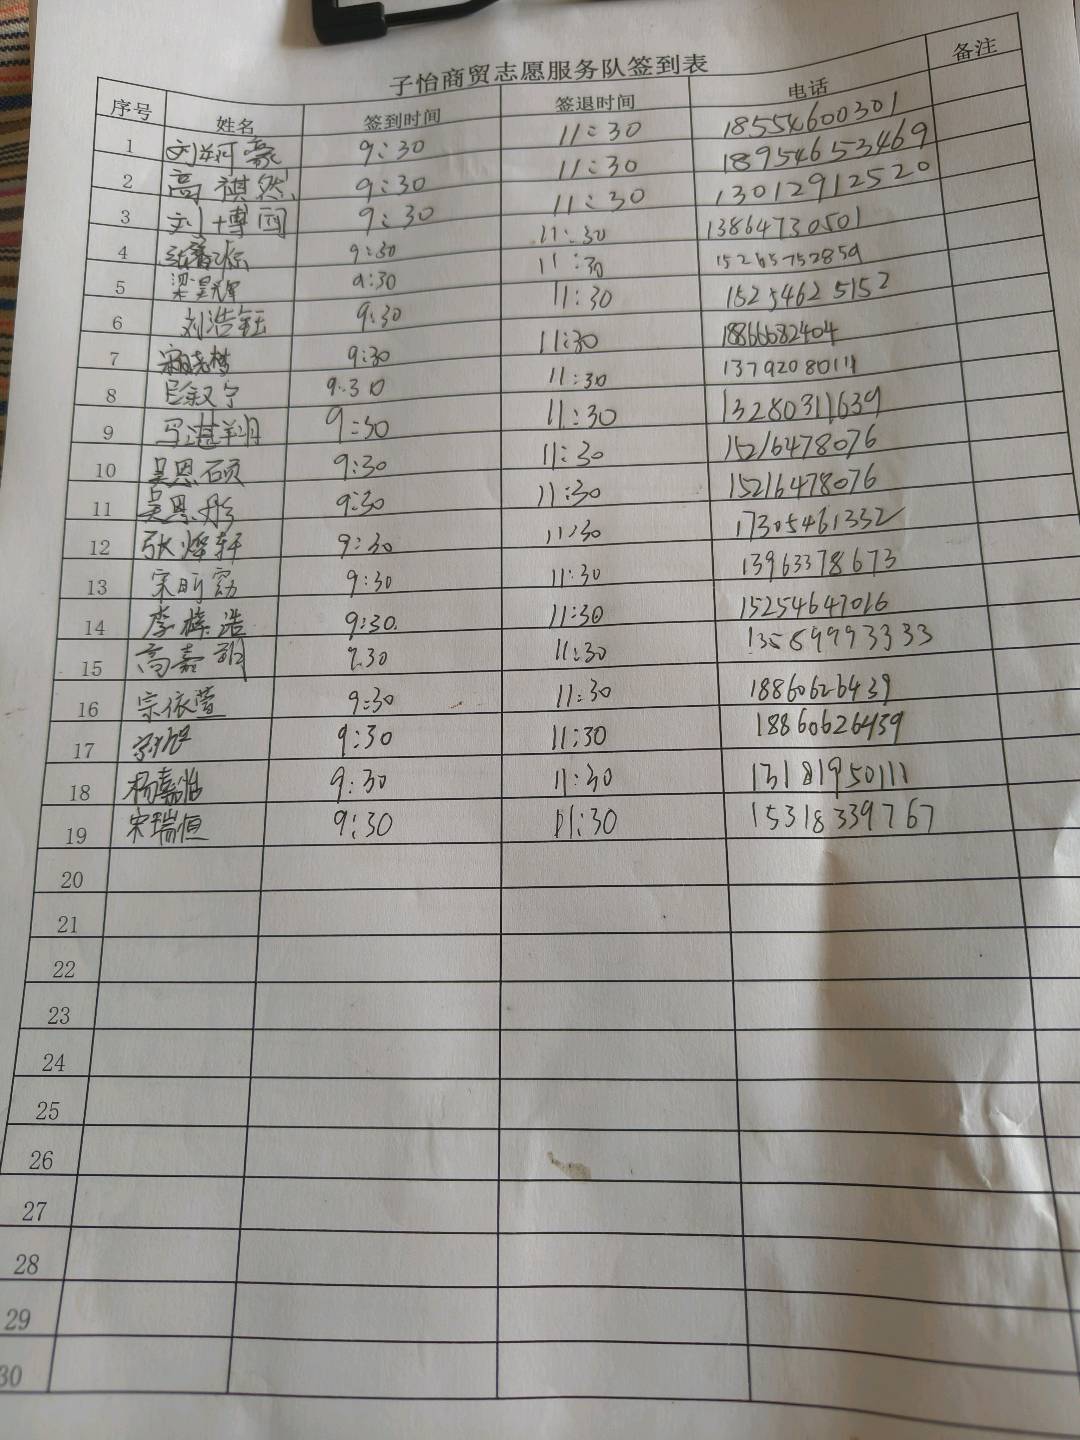 子怡商贸志愿服务队签到表
序号 姓名 签到时间 签退时间 电话 备注
1 9:30 11:30 18554600301
2 高祺然 9:30 11:30 18954653469
3 刘博雨 9:30 11:30 13012912520
4 9:30 11:30 13864730501
5 梁昊辉 9:30 11:30 15265752859
6 刘浩钰 9:30 11:30 15254625152
7 9:30 11:30 18866682404
8 9:30 11:30 13792080111
9 9:30 11:30 13280311639
10 吴恩硕 9:30 11:30 15216478076
11 吴恩彤 9:30 11:30 15216478076
12 张烨轩 9:30 11:30 17305461332
13 宋昕 9:30 11:30 13963378673
14 李梓浩 9:30 11:30 15254647016
15 高嘉 9.30 11:30 13589993333
16 宗依萱 9:30 11:30 18860626439
17 9:30 11:30 18860626439
18 杨嘉怡 9:30 11:30 13181950111
19 宋瑞恒 9:30 11:30 15318339767
20
21
22
23
24
25
26
27
28
29
30